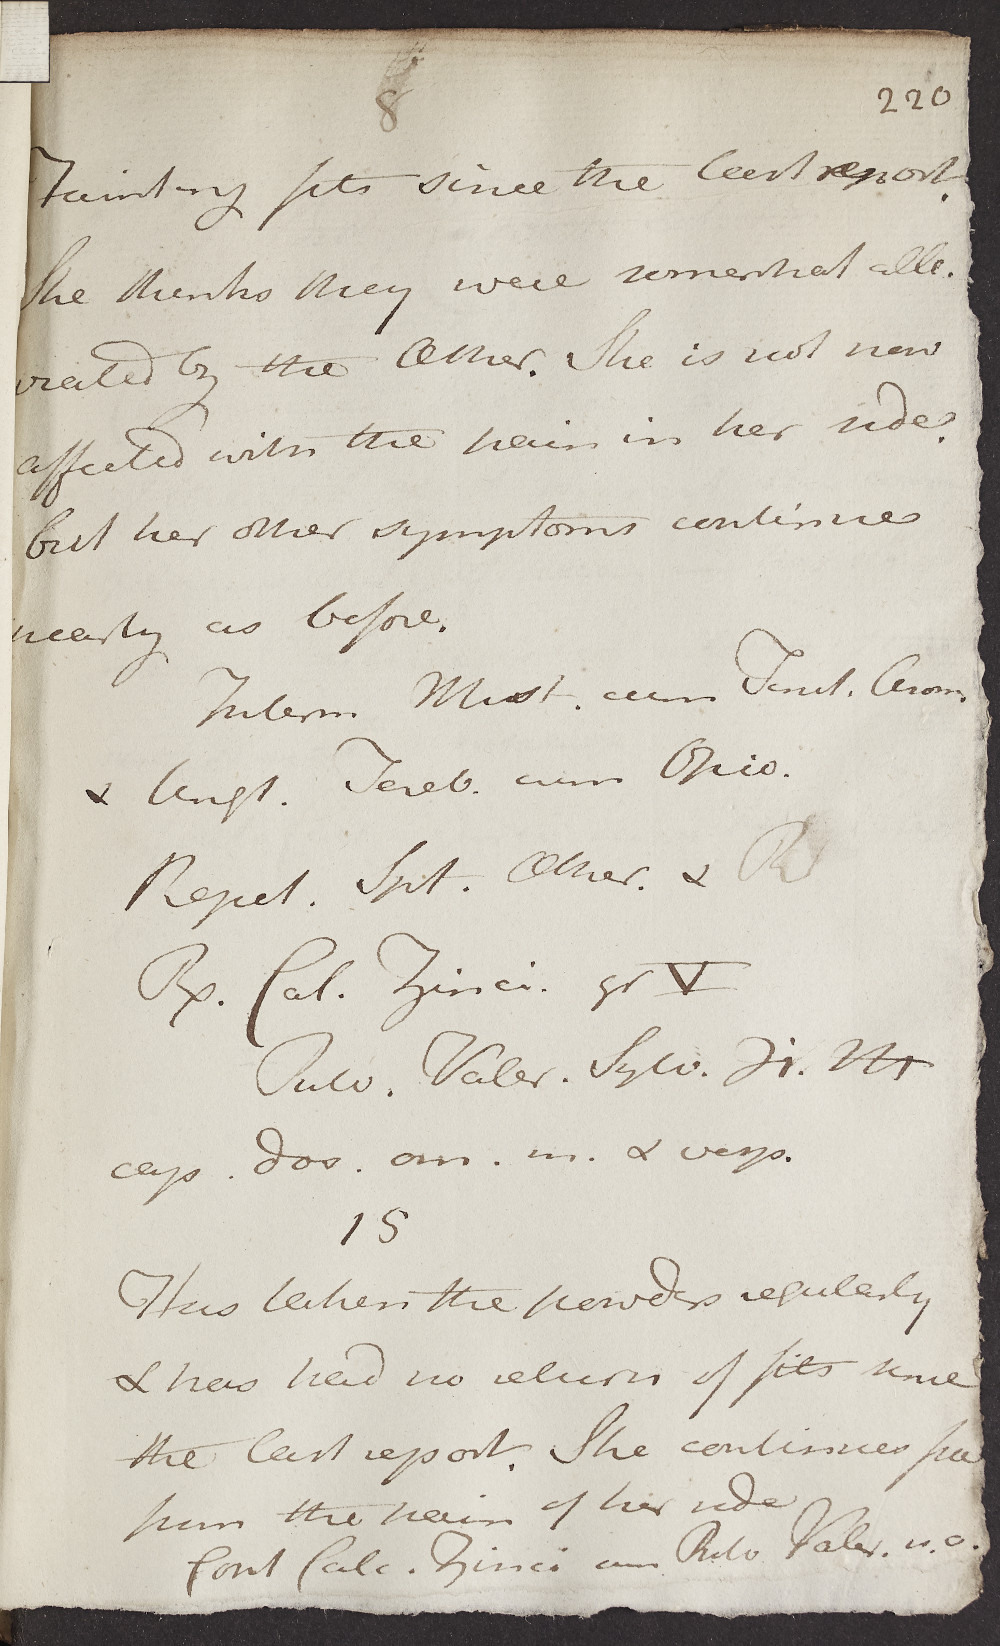 8
220
Fainting fits since the last report.
She thinks they were somewhat alle-
viated by the Æther. She is not now
affected with the pain in her side,
but her other symptoms continue
nearly as before.
Interm Mist. cum Tinct. Arom.
& Ungt. Tereb. cum Opio.
Repet. Spt. Æther. &
Rx. Cal. Zinci. gr V
Pulv. Valer. Sylv. ʒi. M
cap. dos. om. m. & vesp.
15
Has taken the powders regularly
& has had no return of fits since
the last report. She continues free
from the pain of her side
Cont Calc. Zinci cum Pulv Valer. u.a.